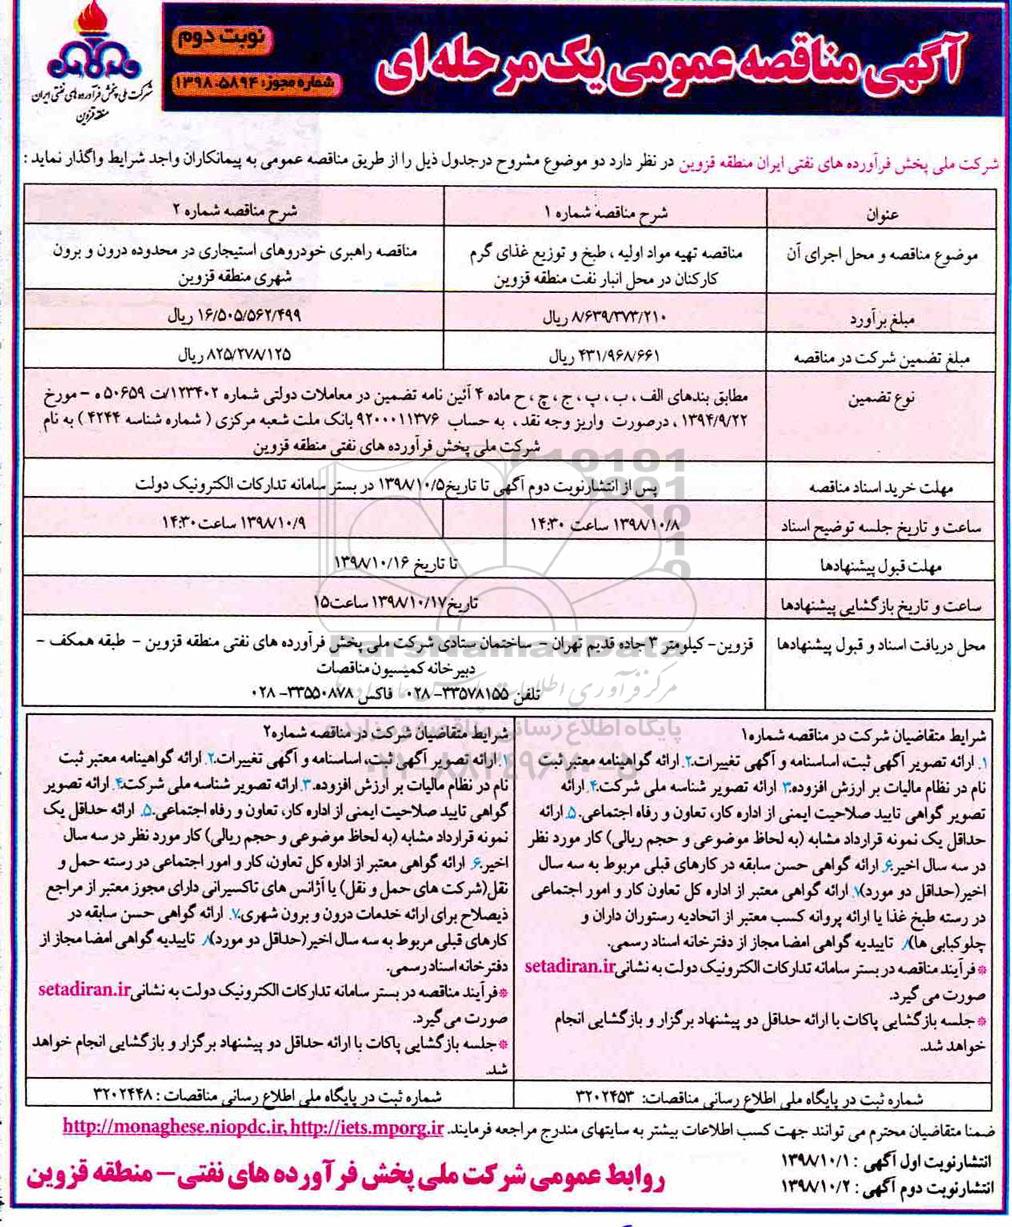 آگهی مناقصه عمومی یک مرحله ای
نوبت دوم
شماره مجوز: ۱۳۹۸.۵۸۹۴
شرکت ملی پخش فرآورده های نفتی ایران
منطقه قزوین
شرکت ملی پخش فرآورده های نفتی ایران منطقه قزوین در نظر دارد دو موضوع مشروح درجدول ذیل را از طریق مناقصه عمومی به پیمانکاران واجد شرایط واگذار نماید :
عنوان | شرح مناقصه شماره ۱ | شرح مناقصه شماره ۲
موضوع مناقصه و محل اجرای آن | مناقصه تهیه مواد اولیه ، طبخ و توزیع غذای گرم | مناقصه راهبری خودروهای استیجاری در محدوده درون و برون
کارکنان در محل انبار نفت منطقه قزوین | شهری منطقه قزوین
مبلغ برآورد | ۸/۶۳۹/۳۷۳/۲۱۰ ریال | ۱۶/۵۰۵/۵۶۲/۴۹۹ ریال
مبلغ تضمین شرکت در مناقصه | ۴۳۱/۹۶۸/۶۶۱ ریال | ۸۲۵/۲۷۸/۱۲۵ ریال
نوع تضمین | مطابق بندهای الف ، ب ، پ ، ج ، چ ، ح ماده ۴ آئین نامه تضمین در معاملات دولتی شماره ۱۲۳۴۰۲/ت ۵۰۶۵۹ ه – مورخ
۱۳۹۴/۹/۲۲ ، درصورت واریز وجه نقد ، به حساب ۹۲۰۰۰۱۱۳۷۶ بانک ملت شعبه مرکزی ( شماره شناسه ۴۲۴۴ ) به نام
شرکت ملی پخش فرآورده های نفتی منطقه قزوین
مهلت خرید اسناد مناقصه | پس از انتشارنوبت دوم آگهی تا تاریخ۱۳۹۸/۱۰/۵ در بستر سامانه تدارکات الکترونیک دولت
ساعت و تاریخ جلسه توضیح اسناد | ۱۳۹۸/۱۰/۸ ساعت ۱۴:۳۰ | ۱۳۹۸/۱۰/۹ ساعت۱۴:۳۰
مهلت قبول پیشنهادها | تا تاریخ ۱۳۹۸/۱۰/۱۶
ساعت و تاریخ بازگشایی پیشنهادها | تاریخ۱۳۹۸/۱۰/۱۷ ساعت۱۵
محل دریافت اسناد و قبول پیشنهادها | قزوین- کیلومتر ۳ جاده قدیم تهران – ساختمان ستادی شرکت ملی پخش فرآورده های نفتی منطقه قزوین – طبقه همکف –
دبیرخانه کمیسیون مناقصات
تلفن ۳۳۵۷۸۱۵۵- ۰۲۸ فاکس ۳۳۵۵۰۸۷۸- ۰۲۸
ParsNamadData
مرکز فرآوری اطلاعات پارس نماد داده ها
پایگاه اطلاع رسانی مناقصه و مزایده
۰۲۱-۸۸۳۴۹۶۷۰-۵
شرایط متقاضیان شرکت در مناقصه شماره۱
۱. ارائه تصویر آگهی ثبت، اساسنامه و آگهی تغییرات.۲. ارائه گواهینامه معتبر ثبت
نام در نظام مالیات بر ارزش افزوده.۳. ارائه تصویر شناسه ملی شرکت.۴. ارائه
تصویر گواهی تایید صلاحیت ایمنی از اداره کار، تعاون و رفاه اجتماعی. ۵. ارائه
حداقل یک نمونه قرارداد مشابه (به لحاظ موضوعی و حجم ریالی) کار مورد نظر
در سه سال اخیر.۶. ارائه گواهی حسن سابقه در کارهای قبلی مربوط به سه سال
اخیر(حداقل دو مورد).۷. ارائه گواهی معتبر از اداره کل تعاون کار و امور اجتماعی
در رسته طبخ غذا یا ارائه پروانه کسب معتبر از اتحادیه رستوران داران و
چلوکبابی ها).۸. تاییدیه گواهی امضا مجاز از دفترخانه اسناد رسمی.
*فرآیند مناقصه در بستر سامانه تدارکات الکترونیک دولت به نشانی setadiran.ir
صورت می گیرد.
*جلسه بازگشایی پاکات با ارائه حداقل دو پیشنهاد برگزار و بازگشایی انجام
خواهد شد.
شماره ثبت در پایگاه ملی اطلاع رسانی مناقصات: ۳۲۰۲۴۵۳
شرایط متقاضیان شرکت در مناقصه شماره۲
۱. ارائه تصویر آگهی ثبت، اساسنامه و آگهی تغییرات.۲. ارائه گواهینامه معتبر ثبت
نام در نظام مالیات بر ارزش افزوده.۳. ارائه تصویر شناسه ملی شرکت.۴. ارائه تصویر
گواهی تایید صلاحیت ایمنی از اداره کار، تعاون و رفاه اجتماعی.۵. ارائه حداقل یک
نمونه قرارداد مشابه (به لحاظ موضوعی و حجم ریالی) کار مورد نظر در سه سال
اخیر.۶. ارائه گواهی معتبر از اداره کل تعاون، کار و امور اجتماعی در رسته حمل و
نقل(شرکت های حمل و نقل) یا آژانس های تاکسیرانی دارای مجوز معتبر از مراجع
ذیصلاح برای ارائه خدمات درون و برون شهری.۷. ارائه گواهی حسن سابقه در
کارهای قبلی مربوط به سه سال اخیر(حداقل دو مورد).۸. تاییدیه گواهی امضا مجاز از
دفترخانه اسناد رسمی.
*فرآیند مناقصه در بستر سامانه تدارکات الکترونیک دولت به نشانی setadiran.ir
صورت می گیرد.
*جلسه بازگشایی پاکات با ارائه حداقل دو پیشنهاد برگزار و بازگشایی انجام خواهد
شد.
شماره ثبت در پایگاه ملی اطلاع رسانی مناقصات : ۳۲۰۲۴۴۸
ضمنا متقاضیان محترم می توانند جهت کسب اطلاعات بیشتر به سایتهای مندرج مراجعه فرمایند. http://monaghese.niopdc.ir, http://iets.mporg.ir
انتشارنوبت اول آگهی : ۱۳۹۸/۱۰/۱
انتشارنوبت دوم آگهی : ۱۳۹۸/۱۰/۲
روابط عمومی شرکت ملی پخش فرآورده های نفتی – منطقه قزوین